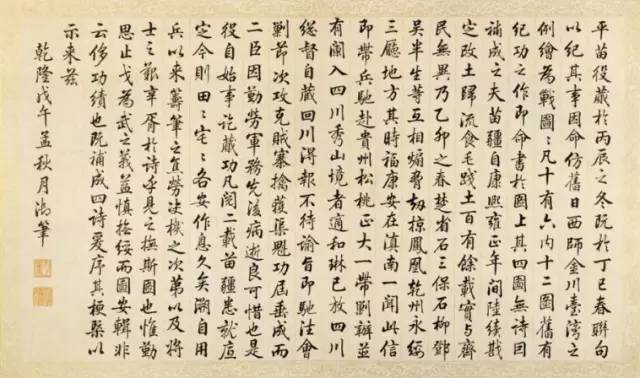 平苗役蕆於丙辰之冬既於丁巳春聯句
以紀其事因命仿舊日西師金川臺灣之
例繪為戰圖〻凡十有六內十二圖舊有
紀功之作即命書於圖上其四圖無詩因
補成之夫苗疆自康熙雍正年間陸續戡
定改土歸流食毛踐土百有餘載實与齊
民無異乃乙卯之春楚省石三保石柳鄧
吳半生等互相煽脅劫掠鳳凰乾州永綏
三廳地方其時福康安在滇南一聞此信
即帶兵馳赴貴州松桃正大一帶剿辦並
有闌入四川秀山境者適和琳已放四川
總督自藏回川得報不待諭旨即馳往會
剿節次攻克賊寨擒獲渠魁功屆垂成而
二臣因勤勞軍務先後病逝良可惜也是
役自始事訖蕆功凡閱二載苗疆悉就底
定今則田〻宅〻各安作息久矣溯自用
兵以來籌筆之宜勞決機之次第以及將
士之艱辛胥於詩乎見之撫斯圖也惟勤
思止戈為武之義益慎綏而圖安輯非
云侈功績也既補成四詩爰序其梗槩以
示來茲
乾隆戊午孟秋月御筆